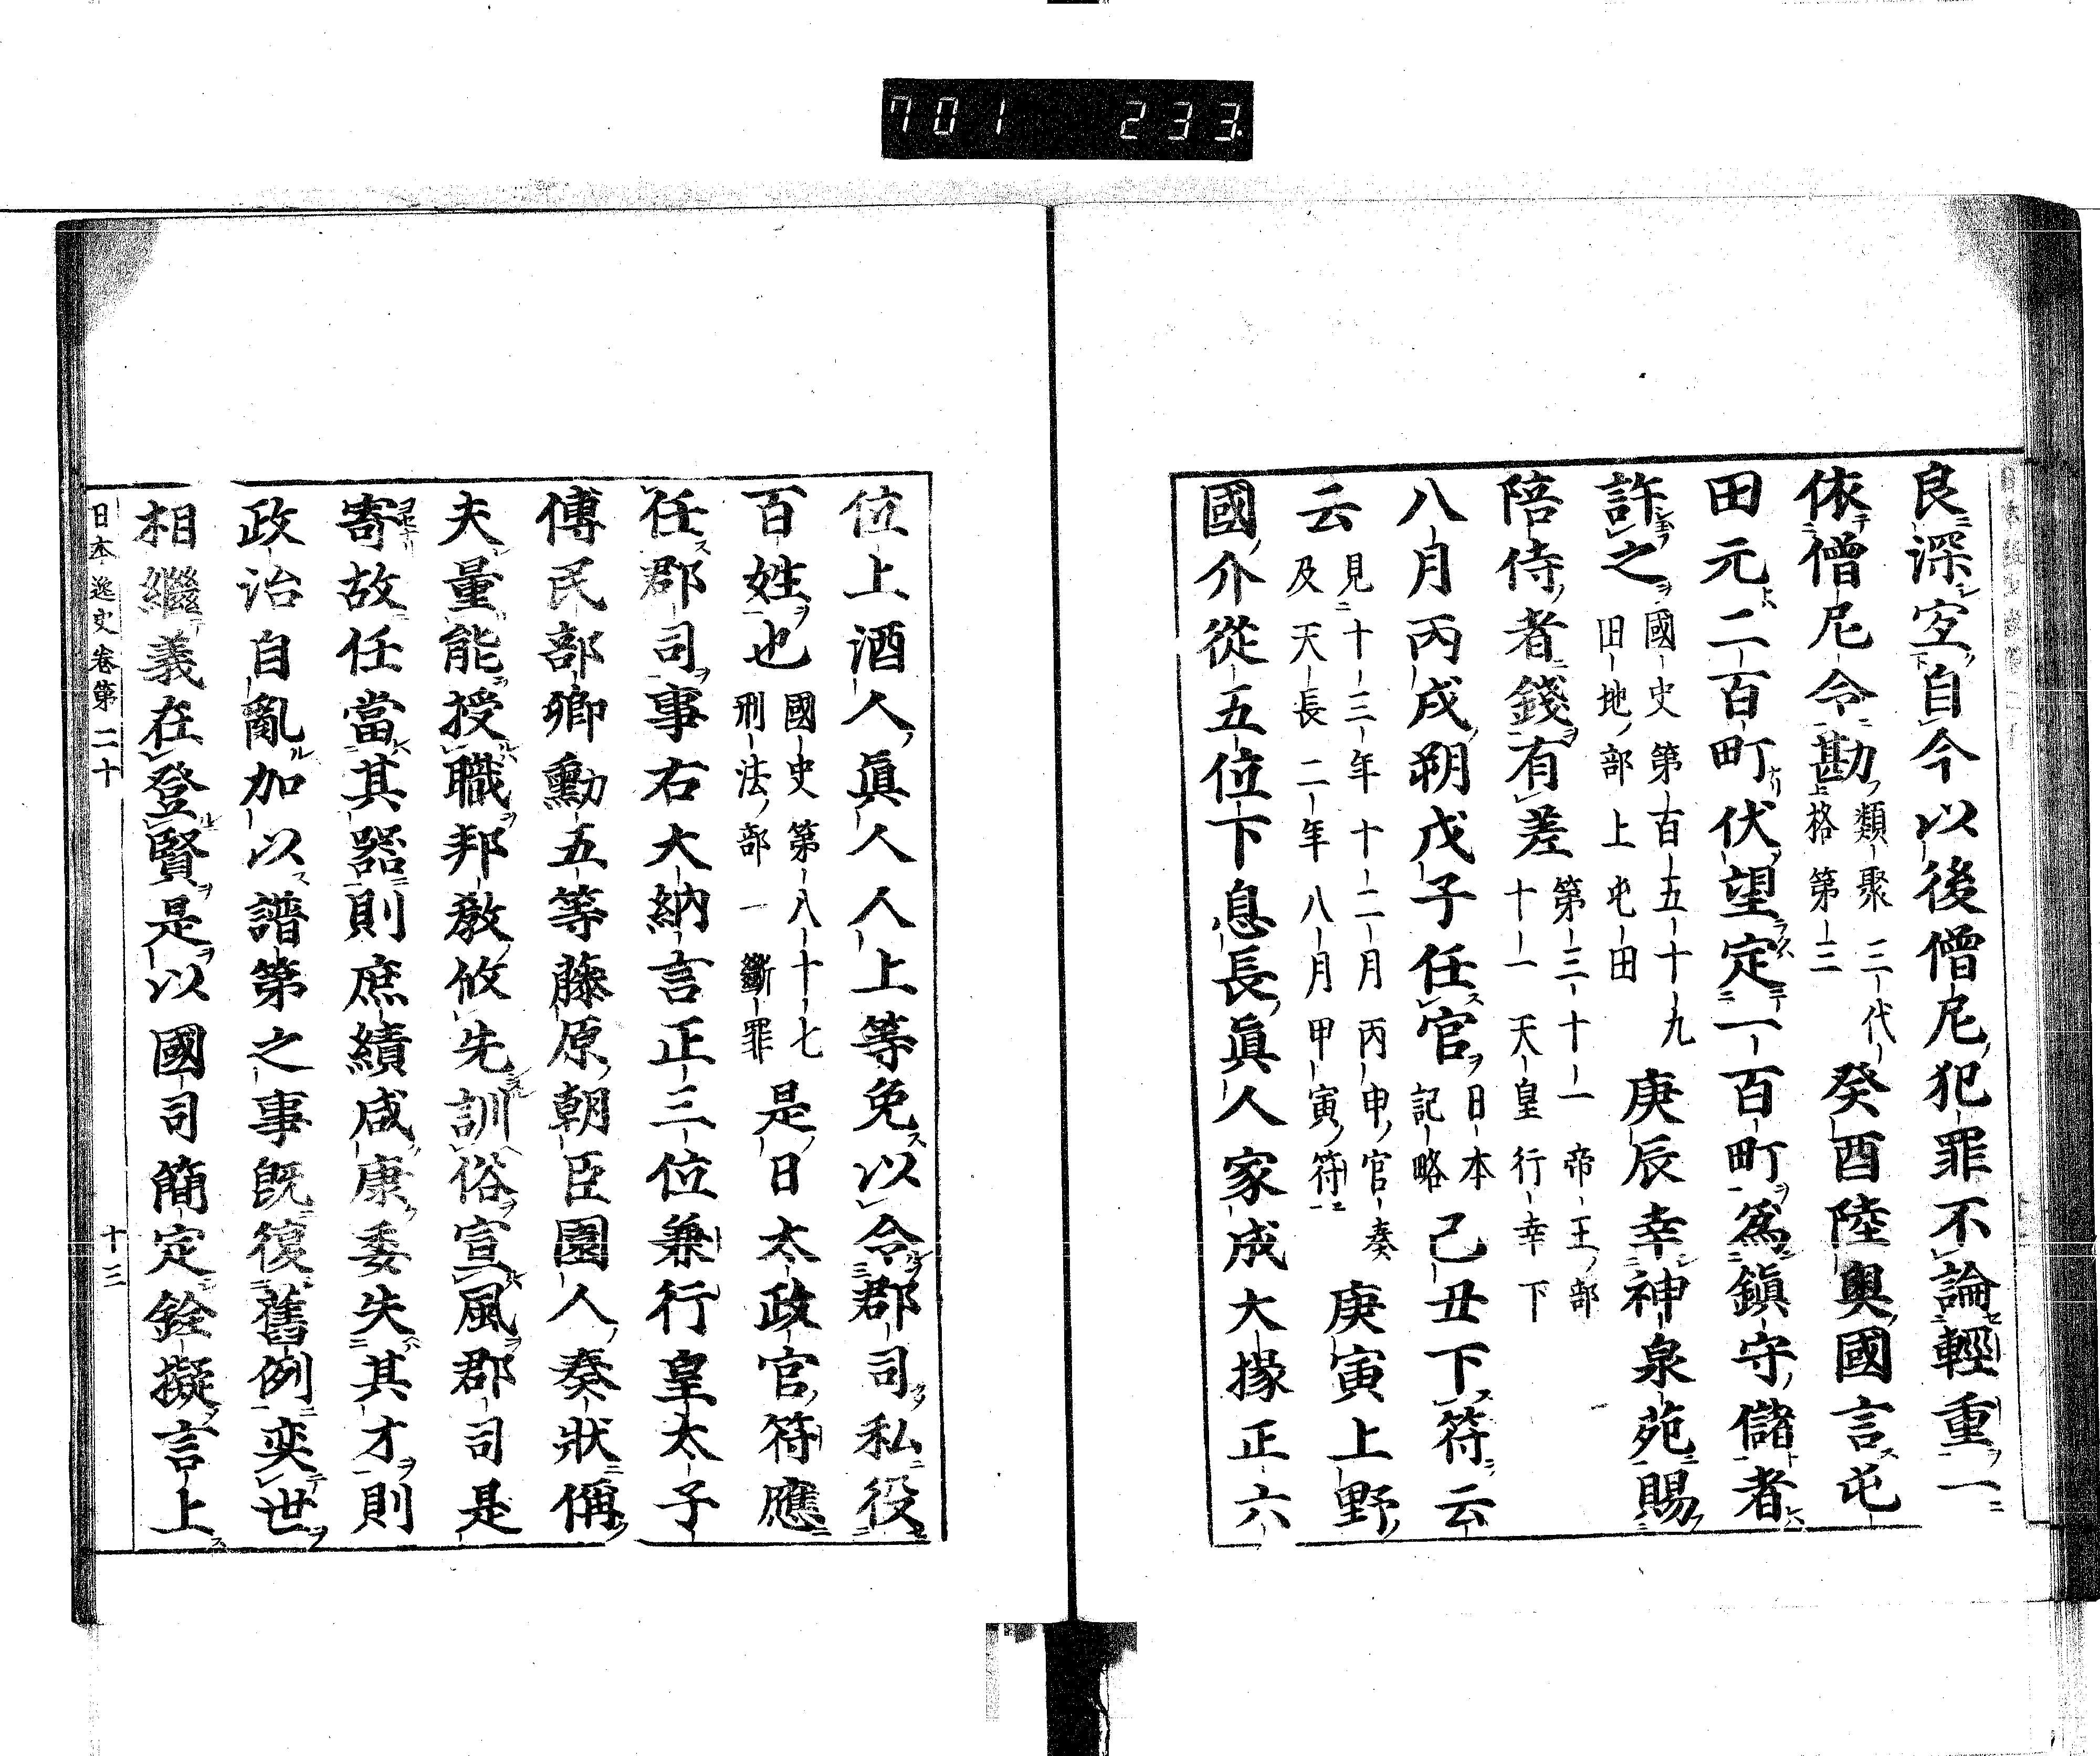 701 233
良深宜自今以後僧尼犯罪不論輕重一
依僧尼令勘類聚三代格第三癸酉陸奥國言屯
田元二百町伏望定一百町爲鎮守儲者
許之國史第百五十九田地部上屯田庚辰幸神泉苑賜
陪侍者錢有差第三十一帝王部十一天皇行幸下
八月丙戌朔戊子任官日本記略己丑下符云
云見十三年十二月丙申官奏及天長二年八月甲寅符庚寅上野
國介從五位下息長眞人家成大掾正六
位上酒人眞人人上等免以令郡司私役
百姓也國史第八十七刑法部一斷罪是日太政官符應
任郡司事右大納言正三位兼行皇太子
傅民部卿勳五等藤原朝臣園人奏狀稱
夫量能授職邦教攸先訓俗宣風郡司是
寄故任當其器則庶績咸康委失其才則
政治自亂加以譜第之事既復舊例奕世
相繼義在登賢是以國司簡定銓擬言上
日本逸史卷第二十 十三